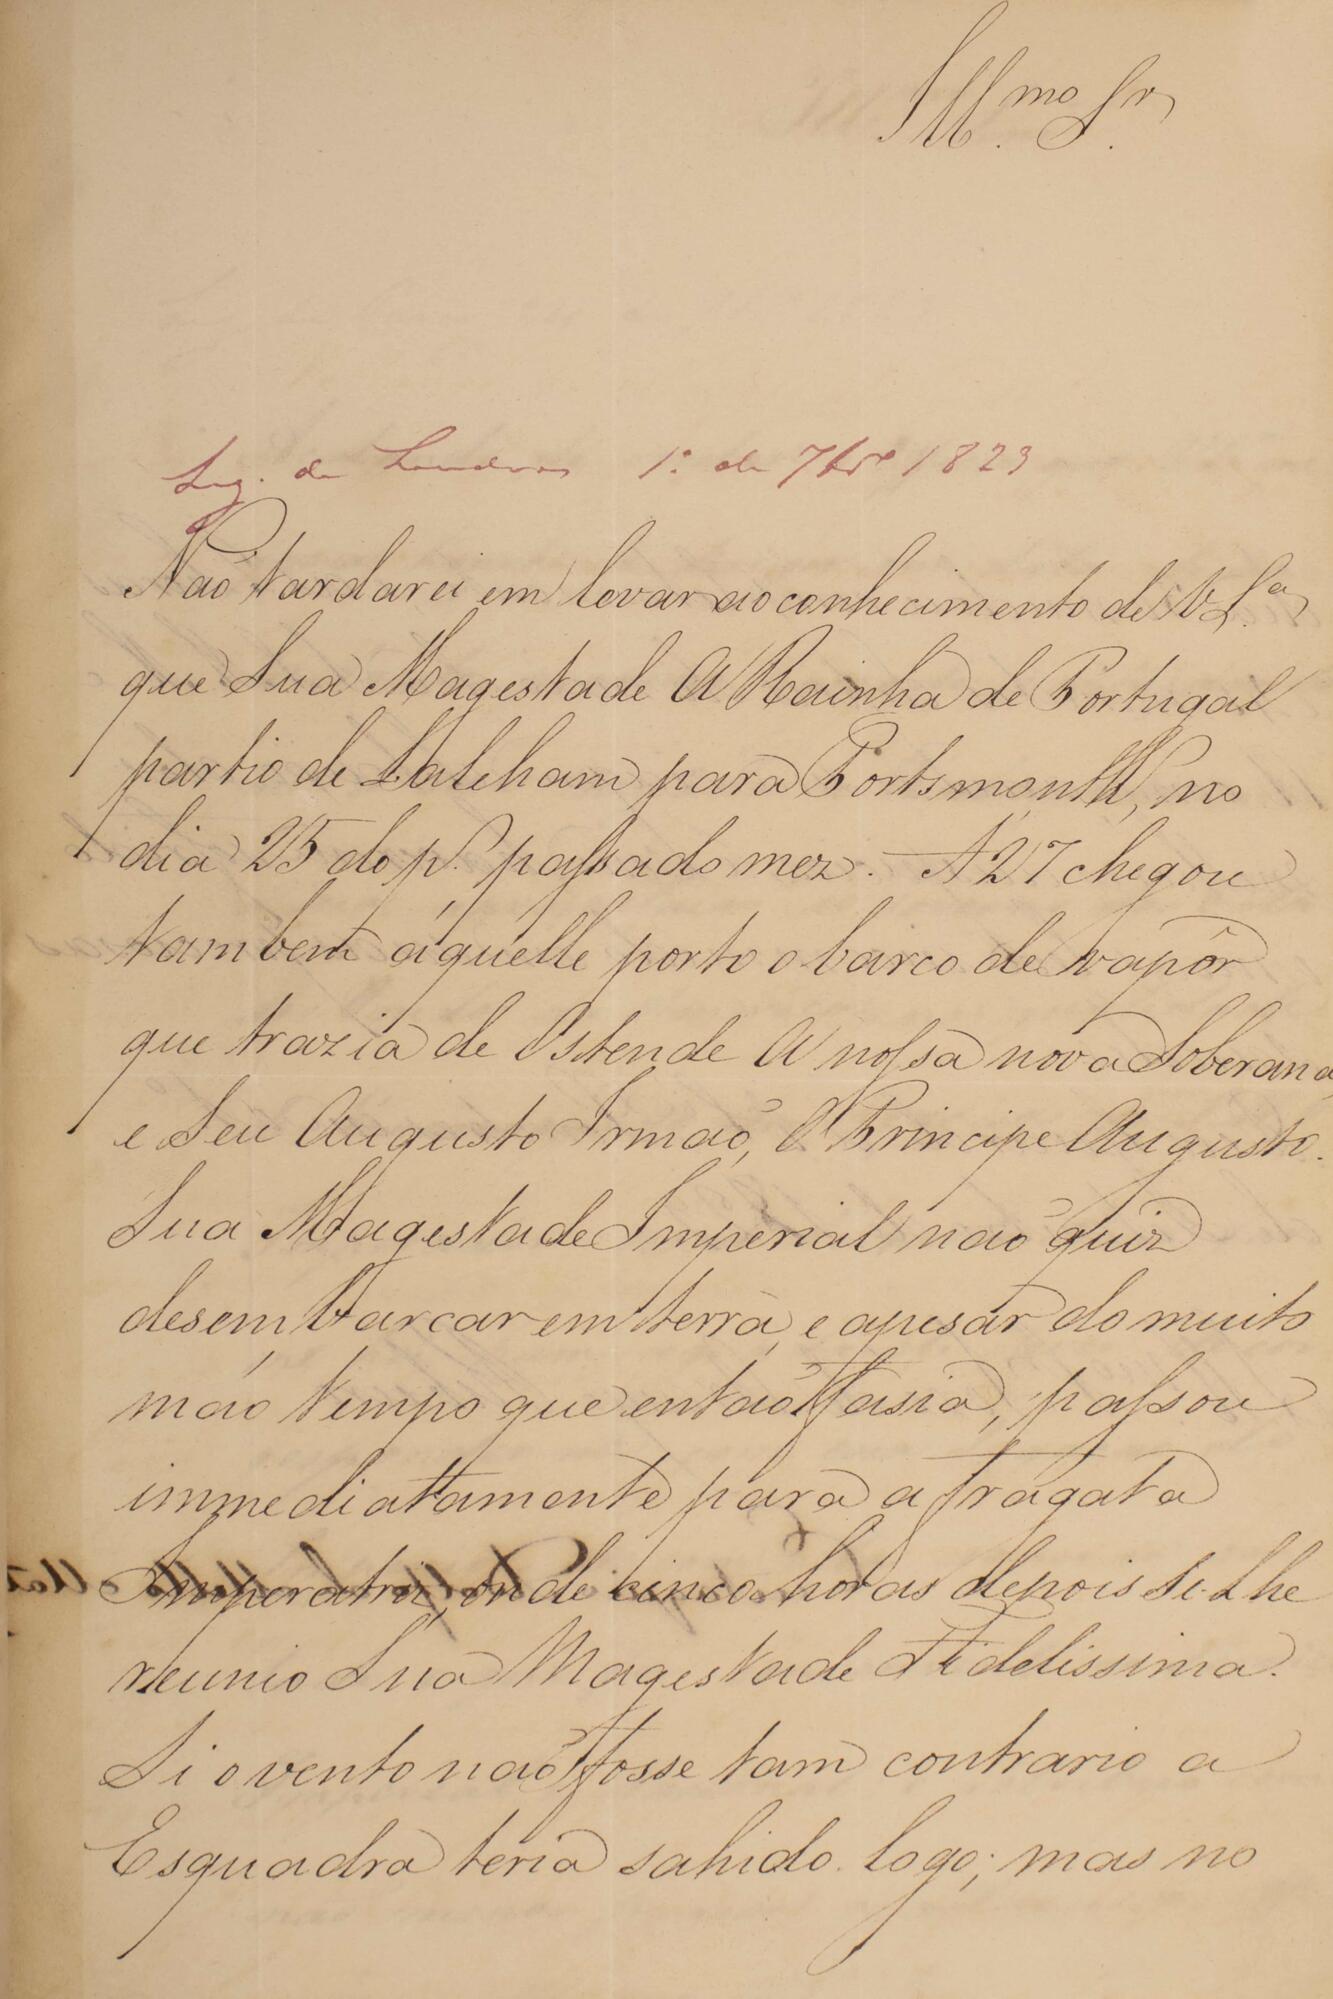 Ill.mo Sr.
Leg. de Londres 1.º de 7bre 1829
Não tardarei em levar ao conhecimento de V S.ª
que Sua Magestade A Rainha de Portugal
partio de Laleham para Portsmouth, no
dia 25 do p.º passado mez. A 27 chegou
tambem áquelle porto o barco de vapôr
que trazia de Ostende A nossa nova Soberana,
e Seu Augusto Irmaõ, O Principe Augusto.
Sua Magestade Imperial naõ quiz
desembarcar em terra, e apesar do muito
máo tempo que entaõ fasia, passou
immediatamente para a fragata
Imperatriz, onde cinco horas depois Se Lhe
reunio Sua Magestade Fidelissima.
Si o vento naõ fosse tam contrario a
Esquadra teria sahido logo; mas no